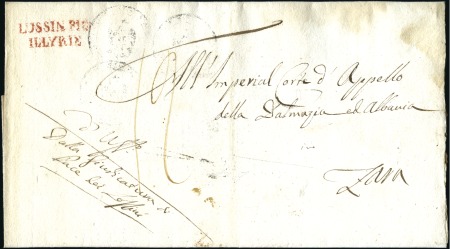 LUSSIN PIC
ILLYRIE
All' Imperial Corte d'Appello
della Dalmazia ed Albania
Zara
d'Uffo
Dalla Giudicatura di
Pace dei